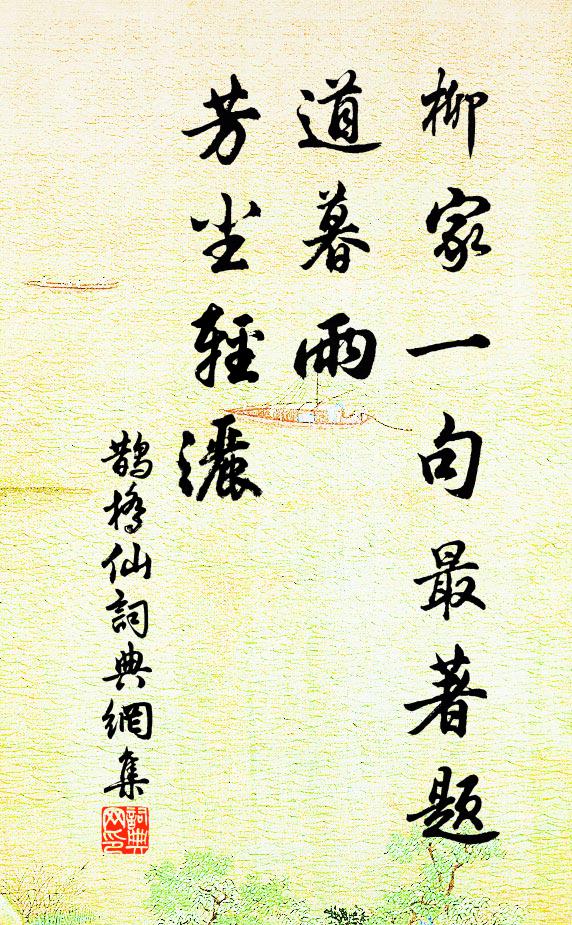 柳家一句最著题
道暮雨
芳尘輕灑
鵲橋仙詞典網集
詞典
网印